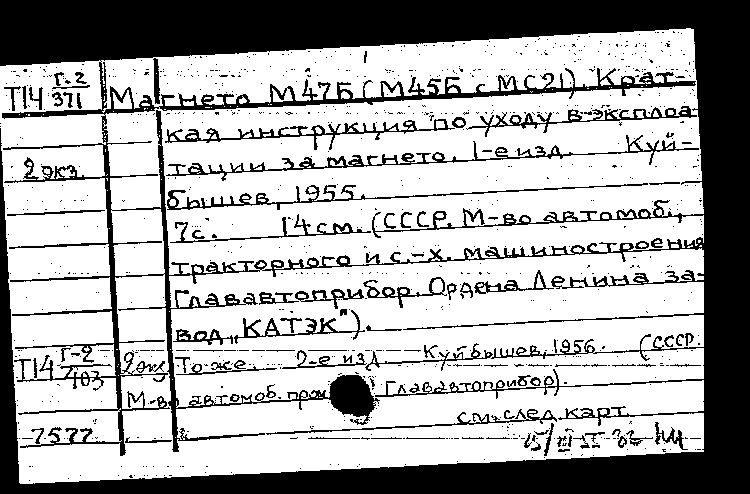 П14 Г-2/371 Магнето М47Б (М45Б с МС21). Крат-
кая инструкция по уходу в эксплоа
2 экз. тации за магнето. 1-е изд. Куй-
бышев, 1955.
7с. 14 см. (СССР. М-во автомоб.,
тракторного и с.-х. машиностроения
Глававтоприбор. Ордена Ленина за-
вод „КАТЭК").
П14 Г-2/403 2 экз То же. 2-е изд Куйбышев, 1956. (СССР.
М-во автомоб. пром Глававтоприбор).
см. след. карт.
7577